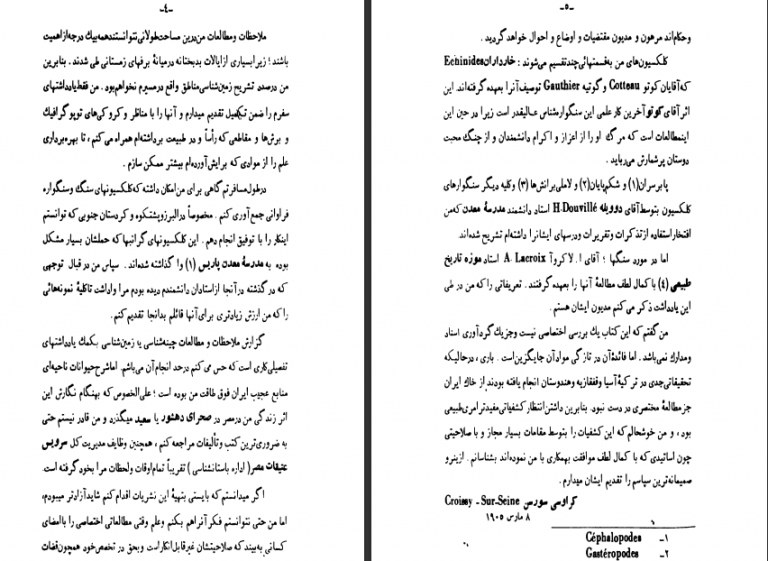 -٤-
ملاحظات ومطالعات من درین مساحت طولانی نتوانستند همه بیک درجه از اهمیت
باشند ؛ زیرا بسیاری از ایالات بدبختانه در میانهٔ برفهای زمستانی طی شدند. بنابرین
من در صدد تشریح زمین‌شناسی مناطق واقع در مسیرم نخواهم بود. من فقط یادداشتهای
سفرم را ضمن تکمیل تقدیم میدارم و آنها را با مناظر و کروکی‌های توپوگرافیک
و برش‌ها و مقاطعی که رأساً و در طبیعت برداشته‌ام همراه می‌کنم ، تا بهره‌برداری
علم را از موادی که برایش آورده‌ام بیشتر ممکن سازم .
در طول مسافرتم گاهی برای من امکان داشته که کلکسیونهای سنگ و سنگواره
فراوانی جمع آوری کنم . مخصوصاً در البرز و پشتکوه و کردستان جنوبی که توانستم
اینکار را با توفیق انجام دهم . این کلکسیونهای گرانبها که حملشان بسیار مشکل
بوده به مدرسهٔ معدن پاریس (۱) وا گذاشته شده‌اند . سپاس من در قبال توجهی
که در گذشته در آنجا از استادان دانشمندم دیده بودم مرا واداشت تا کلیهٔ نمونه‌هائی
را که من ارزش زیادتری برای آنها قائلم بدانجا تقدیم کنم.
گزارش ملاحظات و مطالعات چینه‌شناسی یا زمین‌شناسی بکمك یادداشتهای
تفصیلی کاری است که حس می‌کنم در حد انجام آن می‌باشم. اما شرح حیوانات ناحیه‌ای
منابع عجیب ایران فوق طاقت من بوده است ؛ علی‌الخصوص که بهنگام نگارش این
اثر زندگی من در مصر در صحرای دهشور یا سعید میگذرد و من قادر نیستم حتی
به ضروری‌ترین کتب و تألیفات مراجعه کنم ، همچنین وظایف مدیریت کل سرویس
عتیقات مصر ( اداره باستانشناسی ) تقریباً تمام اوقات و لحظات مرا بخود گرفته است.
اگر میدانستم که بایستی بتهیهٔ این نشریات اقدام کنم شاید آزارتر میبودم،
اما من حتی نتوانستم فکر آنرا هم بکنم وعلم وقتی مطالعاتی اختصاصی را باامضای
کسانی به بیند که صلاحیتشان غیر قابل انکار است و بحق در تخصص خود همچون قضات
-٥-
و حکام‌اند مرهون و مدیون مقتضیات و اوضاع و احوال خواهد گردید .
کلکسیون‌های من به قسمتهائی چند تقسیم می‌شوند : خارداران Echinides
که آقایان کوتو Cotteau و گوتیه Gauthier توصیف آنرا بعهده گرفته‌اند. این
اثر آقای کوتو آخرین کار علمی این سنگواره‌شناس عالیقدر است زیرا در حین این
این مطالعات است که مرگ او را از اعزاز و اکرام دانشمندان و از چنگ محبت
دوستان پرشمارش می‌رباید .
پابرسران(۱) و شکم‌پایان(۲) و لاملی‌برانش‌ها (۳) و کلیه دیگر سنگوارهای
کلکسیون بتوسط آقای دوویله H-Douvillé استاد دانشمند مدرسهٔ معدن که من
افتخار استفاده از تذکرات و تقریرات ودرسهای ایشانرا داشته‌ام تشریح شده‌اند
اما در مورد سنگها ؛ آقای ا. لاکروآ A. Lacroix استاد موزه تاریخ
طبیعی (٤) با کمال لطف مطالعهٔ آنها را بعهده گرفتند . تعریفاتی را که من در طی
این یادداشت ذکر می‌کنم مدیون ایشان هستم .
من گفتم که این کتاب یك بررسی اختصاصی نیست و جز یك گردآوری اسناد
ومدارك نمی‌باشد . اما فائدهٔ آن در تازگی مواد آن جایگزین است . باری ، در حالیکه
تحقیقاتی جدی در ترکیهٔ آسیا وقفقازیه وهندوستان انجام یافته بودند از خاك ایران
جز مطالعهٔ مختصری در دست نبود. بنابرین داشتن انتظار کشفیاتی مفید تر امری طبیعی
بود ، و من خوشحالم که این کشفیات را بتوسط مقامات بسیار مجاز و با صلاحیتی
چون اساتیدی که با کمال لطف موافقت بهمکاری با من نموده‌اند بشناسانم . ازینرو
صمیمانه‌ترین سپاسم را تقدیم ایشان میدارم .
کراوسی سورسن Croissy - Sur-Seine
۸ مارس ۱۹۰۵
۱- Céphalopodes
۲- Gastéropodes